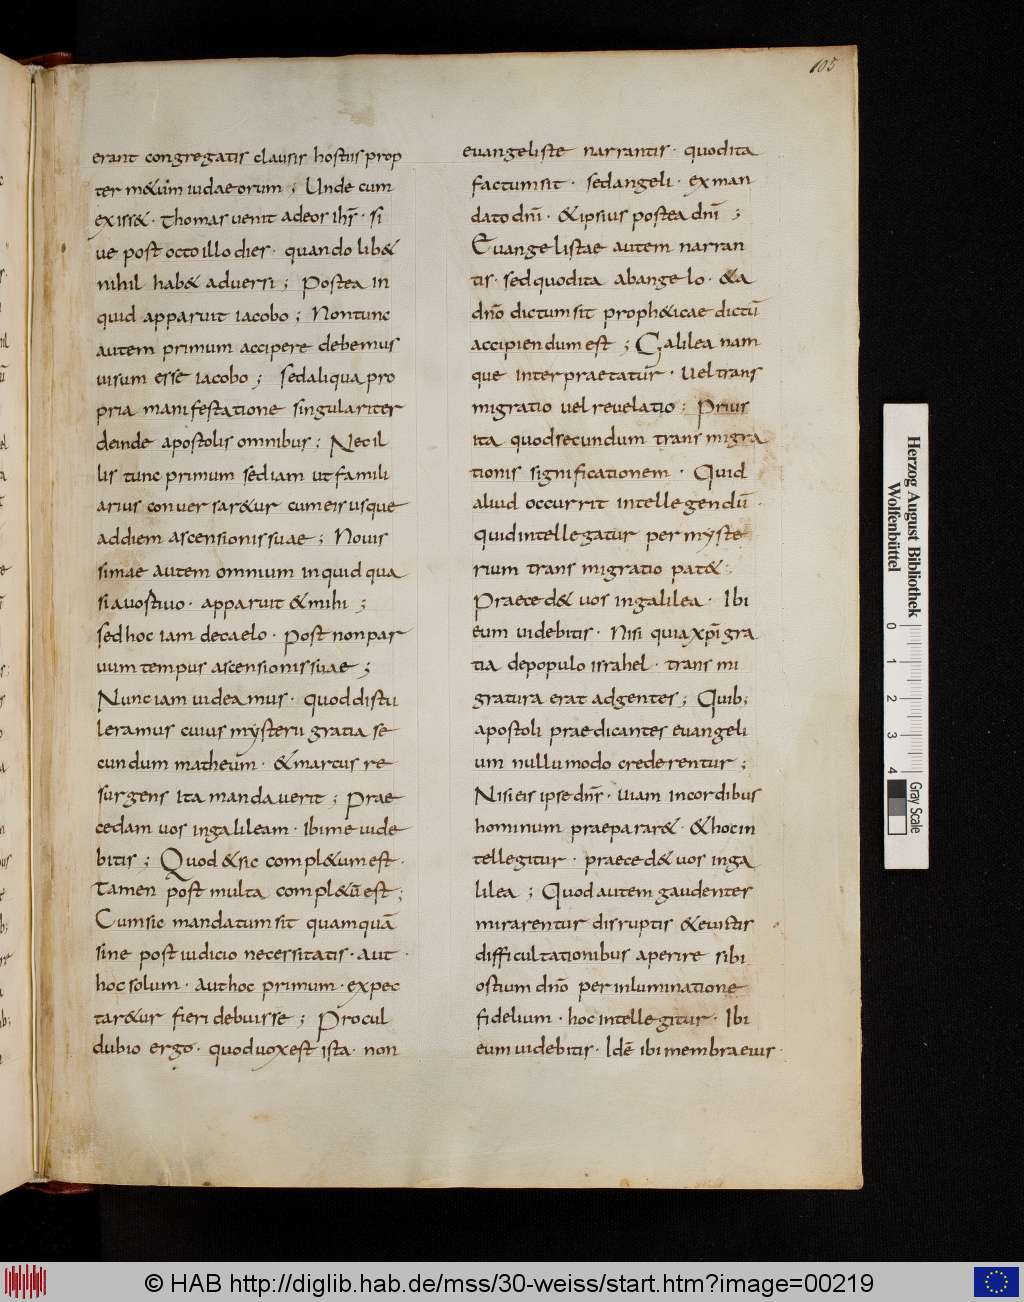 105
erant congregatis clausis hostiis prop
ter m&um iudaeorum ; Unde cum
exiss& · thomas uenit adeos ihs̄ · si
ue post octo illo dies · quando lib&
nihil hab& adversi ; Postea in
quid apparuit iacobo ; Nontunc
autem primum accipere debemus
uisum esse iacobo ; sedaliqua pro
pria manifestatione singulariter
deinde apostolis omnibus ; Nec il
lis tunc primum sediam ut famili
arius conuersar&ur cumeis usque
addiem ascensionis suae ; Nouis
simae autem omnium inquid qua
siauostiuo · apparuit &mihi ;
sedhoc iam decaelo · Post nonpar
uum tempus ascensionis suae ;
Nunc iam uideamus · quod distu
leramus cuius mysterii gratia se
cundum matheum · & marcus re
surgens ita mandauerit ; Prae
cedam uos ingalileam · Ibi me uide
bitis ; Quod &sic compl&um est ·
tamen post multa compl&ū est ;
Cumsic mandatum sit quamquā
sine postiudicio necessitatis · aut ·
hoc solum · aut hoc primum · expec
tar&ur fieri debuisse ; Procul
dubio ergo · quod uox est ista · non
euangeliste narrantis · quodita
factum sit · sedangeli · exman
dato dni̅ · &ipsius postea dni̅ ;
Euangelistae autem narran
tis · sed quodita abangelo · &a
dno̅ dictum sit proph&icae dictū
accipiendum est ; Galilea nam
que interpraetatur · Uel trans
migratio uel reuelatio ; Prius
ita quod secundum transmigra
tionis significationem · Quid
aliud occurrit intellegendū ·
quid intellegatur per myste
rium transmigratio pat& ;
Praeced& uos ingalilea · Ibi
eum uidebitis · Nisi quia xpi̅ gra
tia depopulo israhel · transmi
gratura erat adgentes ; Quib;
apostoli praedicantes euangeli
um nullu modo crederentur ;
Nisi eis ipse dns̄ · uiam incordibus
hominum praeparar& · &hocin
tellegitur · praeced& uos inga
lilea ; Quod autem gaudentes
mirarentur disruptis &euictis
difficultationibus aperire sibi
ostium dno̅ per inluminatione
fidelium · hoc intellegitur · Ibi
eum uidebitis · Idē ibi membra eius ·
Herzog August Bibliothek
Wolfenbüttel
0 1 2 3 4
Gray Scale
© HAB http://diglib.hab.de/mss/30-weiss/start.htm?image=00219